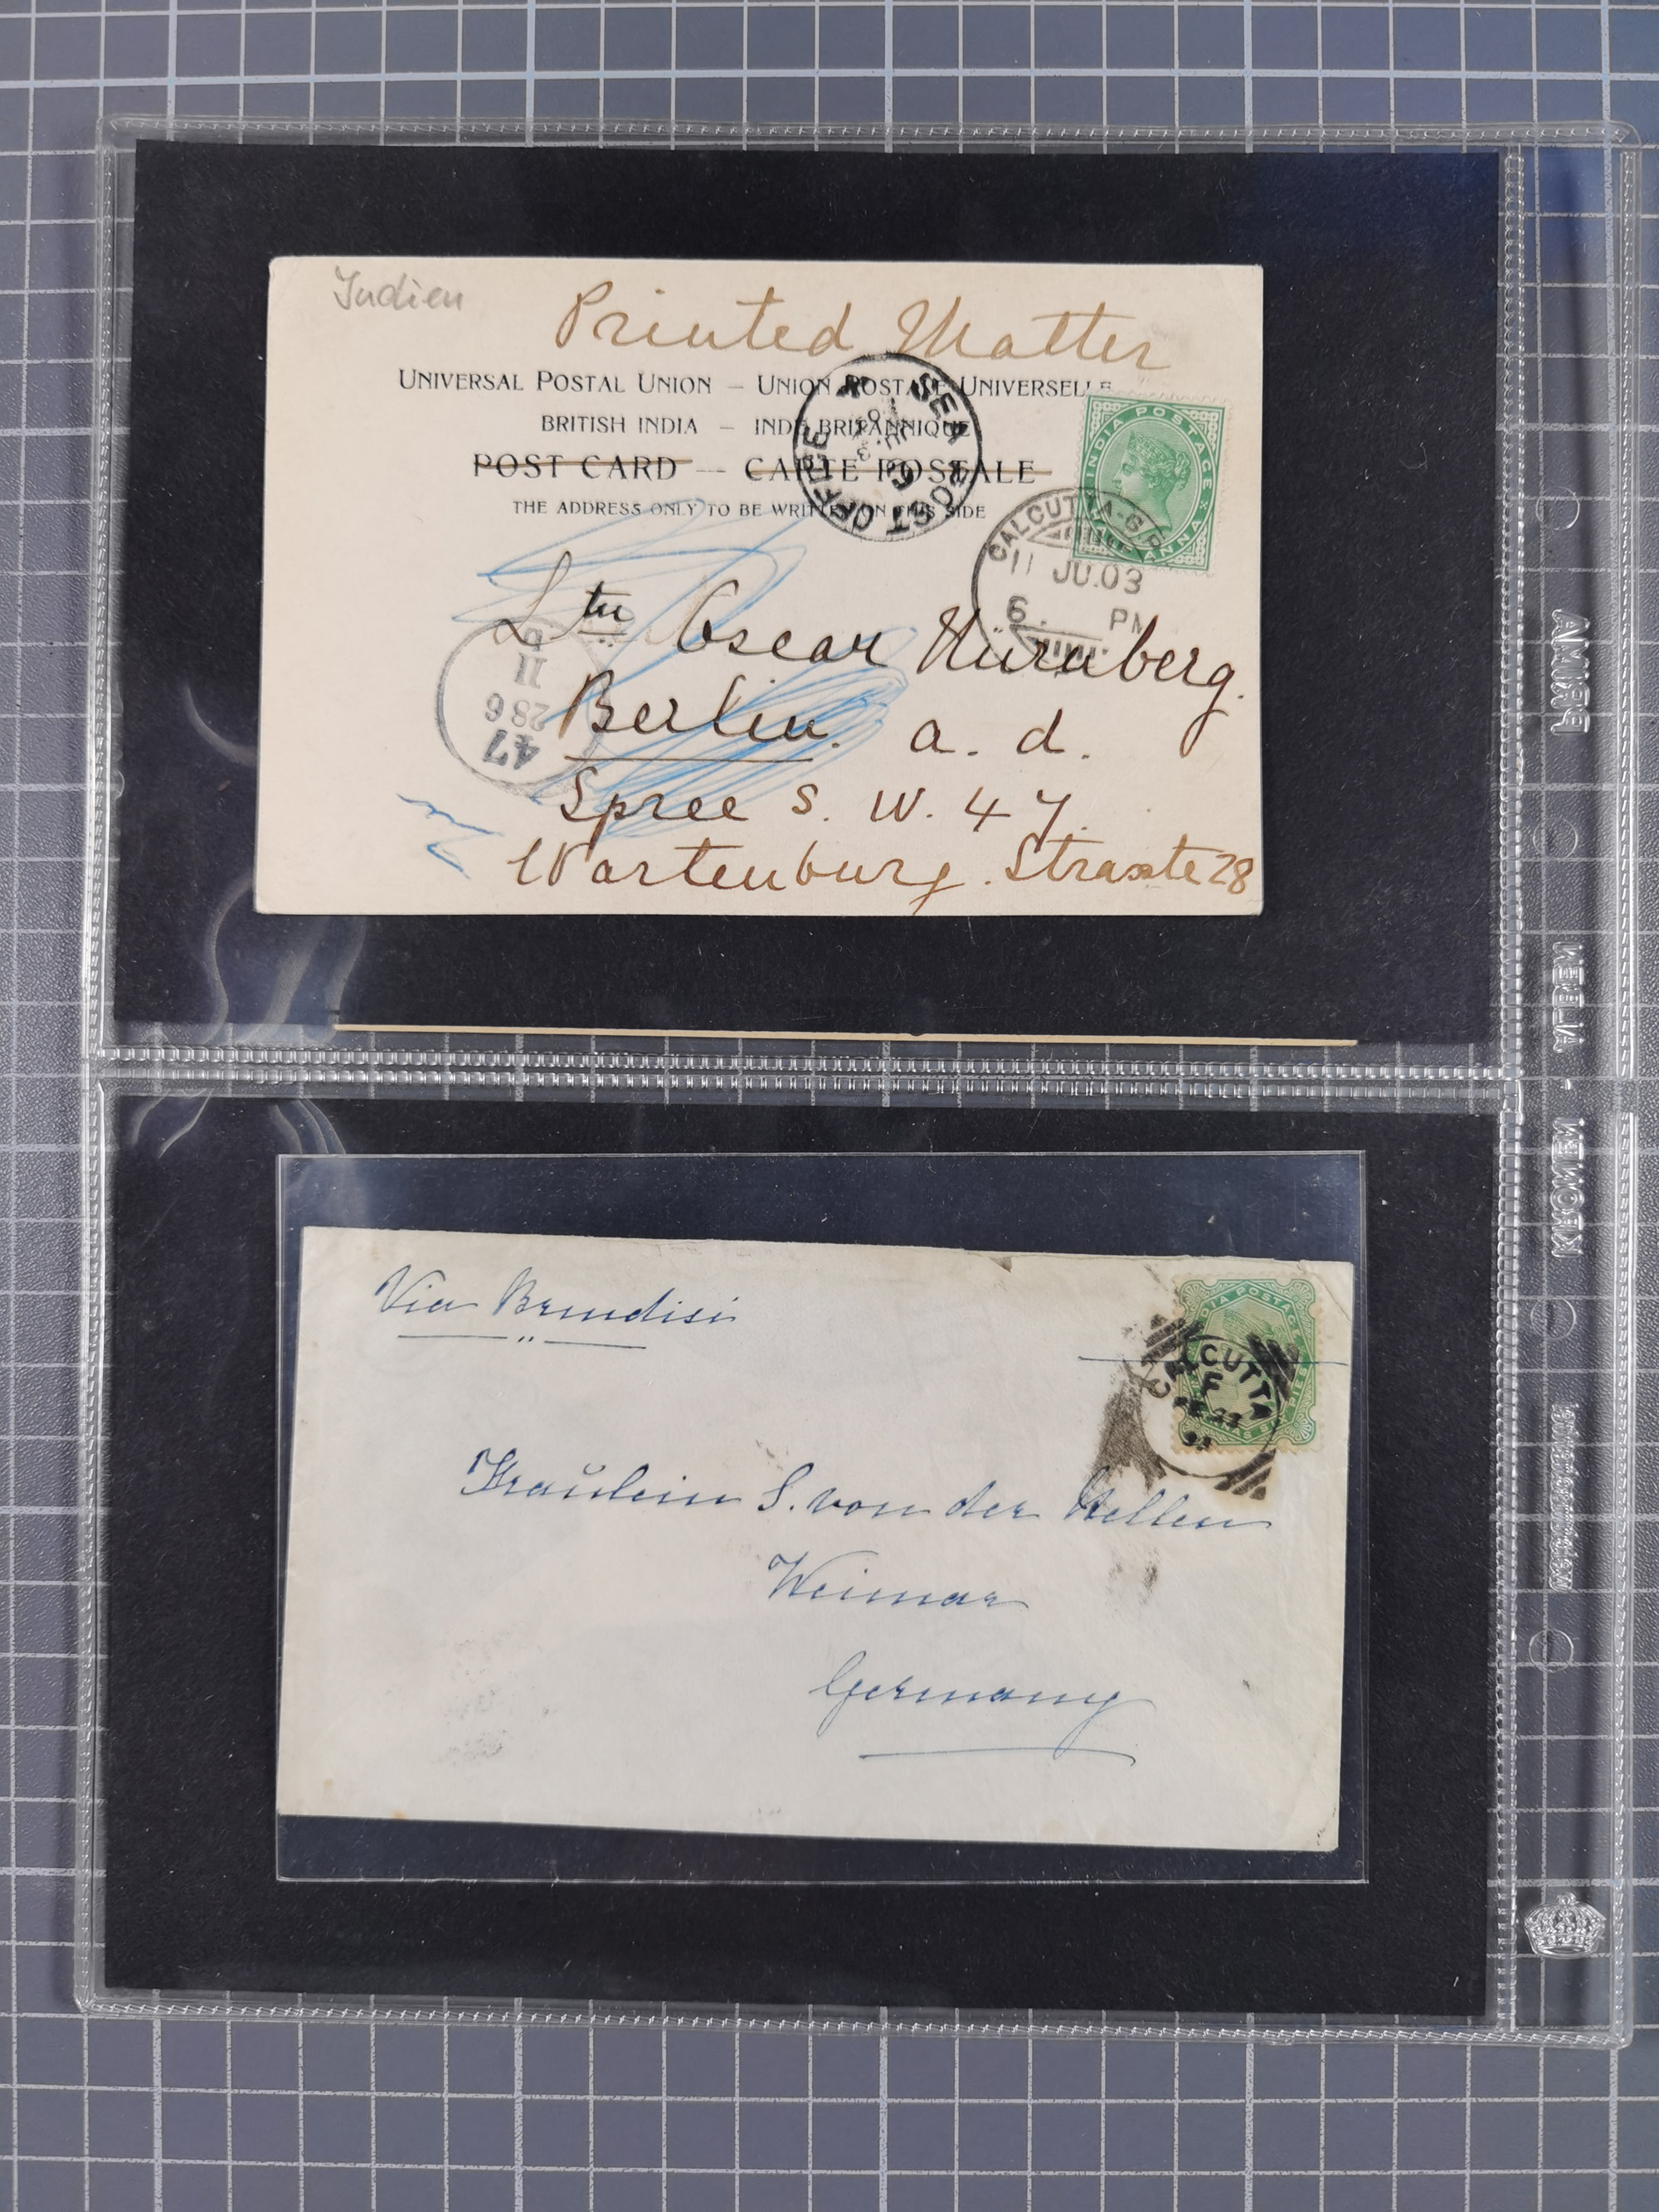 Indien
Printed Matter
UNIVERSAL POSTAL UNION – UNION POSTALE UNIVERSELLE
BRITISH INDIA – INDE BRITANNIQUE
POST CARD — CARTE POSTALE
THE ADDRESS ONLY TO BE WRITTEN ON THIS SIDE
SEA POST OFFICE
INDIA POSTAGE
HALF ANNA
CALCUTTA-G.P.
11 JU.03
6. PM
Ltn Oscar Nürnberg.
Berlin. a. d.
Spree S. W. 47.
Wartenburg. Strasste 28
47
28 6
11
Via Brindisi
INDIA POSTAGE
CALCUTTA
F
FE 23
93
Fräulein S. von der Hellen
Weimar
Germany
PRIMA